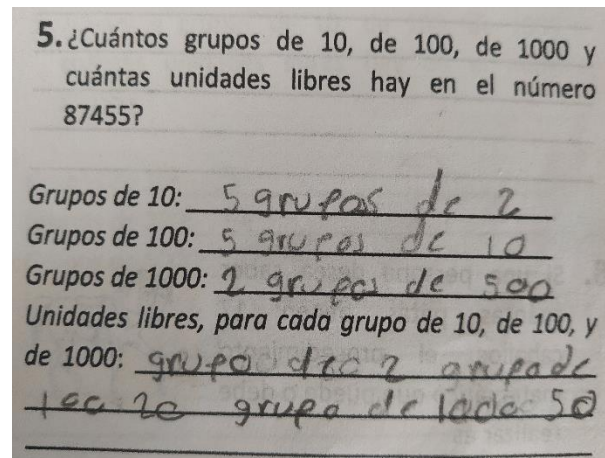 5. ¿Cuántos grupos de 10, de 100, de 1000 y
cuántas unidades libres hay en el número
87455?
Grupos de 10: 5 grupos de 2
Grupos de 100: 5 grupos de 10
Grupos de 1000: 2 grupos de 500
Unidades libres, para cada grupo de 10, de 100, y
de 1000: grupo 2 grupo de
grupo de 50